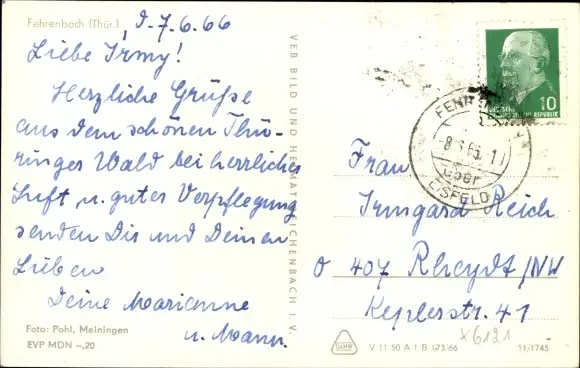 Fehrenbach (Thür.) , d. 7.6.66
Liebe Irmy!
Herzliche Grüße
aus dem schönen Thü-
ringer Wald bei herrlicher
Luft u. guter Verpflegung
senden Dir und Deinen
Lieben
Deine Marianne
u. Mann.
Foto: Pohl, Meiningen
EVP MDN –,20
VEB BILD UND HEIMAT REICHENBACH I. V.
10
DEUTSCHE
DEMOKRATISCHE REPUBLIK
über
EISFELD
Frau
Irmgard Reich
407 Rheydt/NW
Keplerstr. 41
X6121
V 11 50 A 1 B 173/66
11/1745